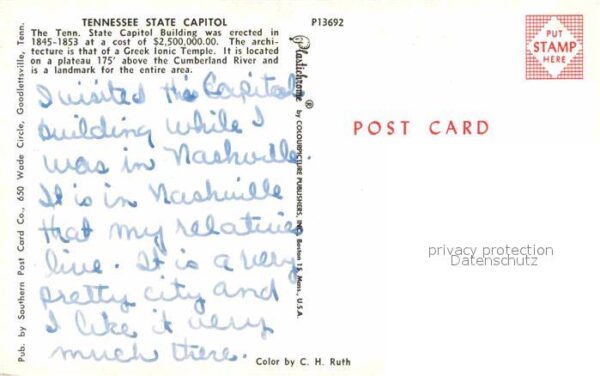 TENNESSEE STATE CAPITOL
P13692
The Tenn. State Capitol Building was erected in
1845-1853 at a cost of $2,500,000.00. The archi-
tecture is that of a Greek Ionic Temple. It is located
on a plateau 175' above the Cumberland River and
is a landmark for the entire area.
I visited the Capitol
building while I
was in Nashville.
It is in Nashville
that my relatives
live. It is a very
pretty city and
I like it very
much there.
Color by C. H. Ruth
Pub. by Southern Post Card Co., 650 Wade Circle, Goodlettsville, Tenn.
Plastichrome ® by COLOURPICTURE PUBLISHERS, INC. Boston 15, Mass., U.S.A.
PUT
STAMP
HERE
POST CARD
privacy protection
Datenschutz